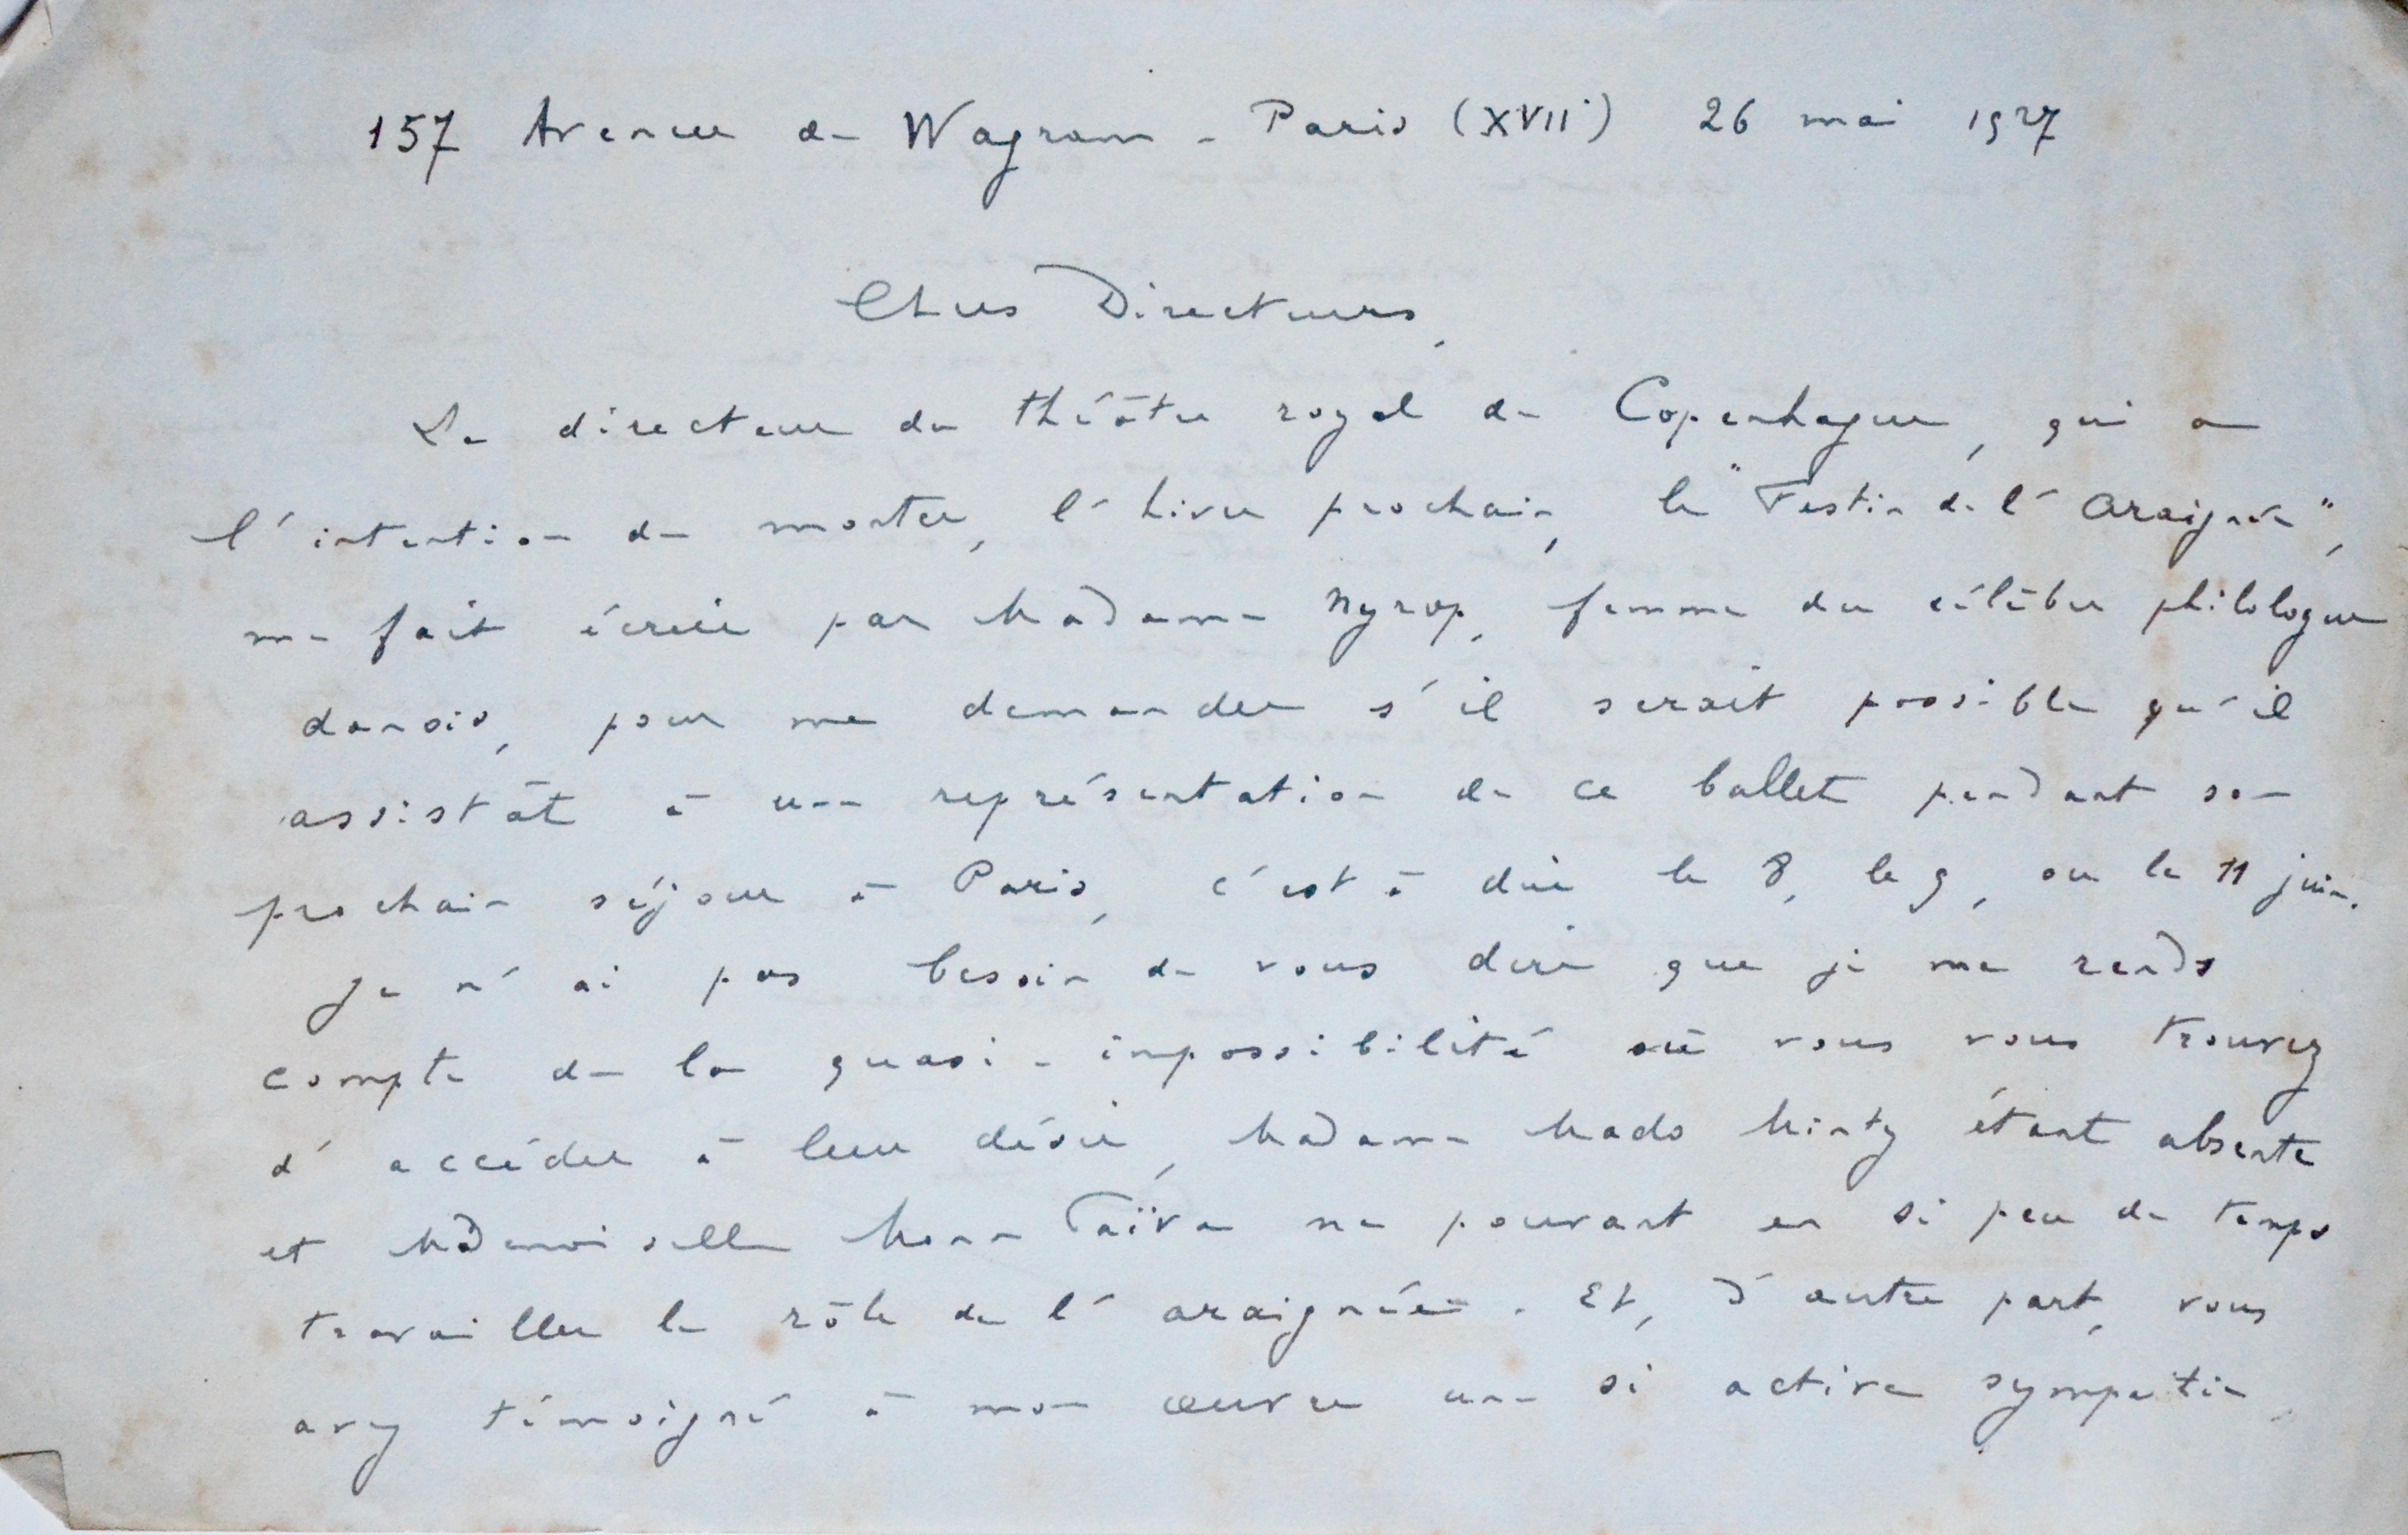 157 Avenue de Wagram - Paris (XVIIe) 26 mai 1927
Chers Directeurs,
Le directeur du théâtre royal de Copenhague, qui a
l'intention de monter, l'hiver prochain, le "Festin de l'Araignée",
me fait écrire par Madame Nyrop, femme du célèbre philologue
danois, pour me demander s'il serait possible qu'il
assistât à une représentation de ce ballet pendant son
prochain séjour à Paris, c'est à dire le 8, le 9, ou le 11 juin.
Je n'ai pas besoin de vous dire que je me rends
compte de la quasi-impossibilité où vous vous trouvez
d'accéder à leur désir, Madame Mado Minty étant absente
et Mademoiselle Mona Païva ne pouvant en si peu de temps
travailler le rôle de l'araignée. Et, d'autre part, vous
avez témoigné à mon œuvre une si active sympathie,